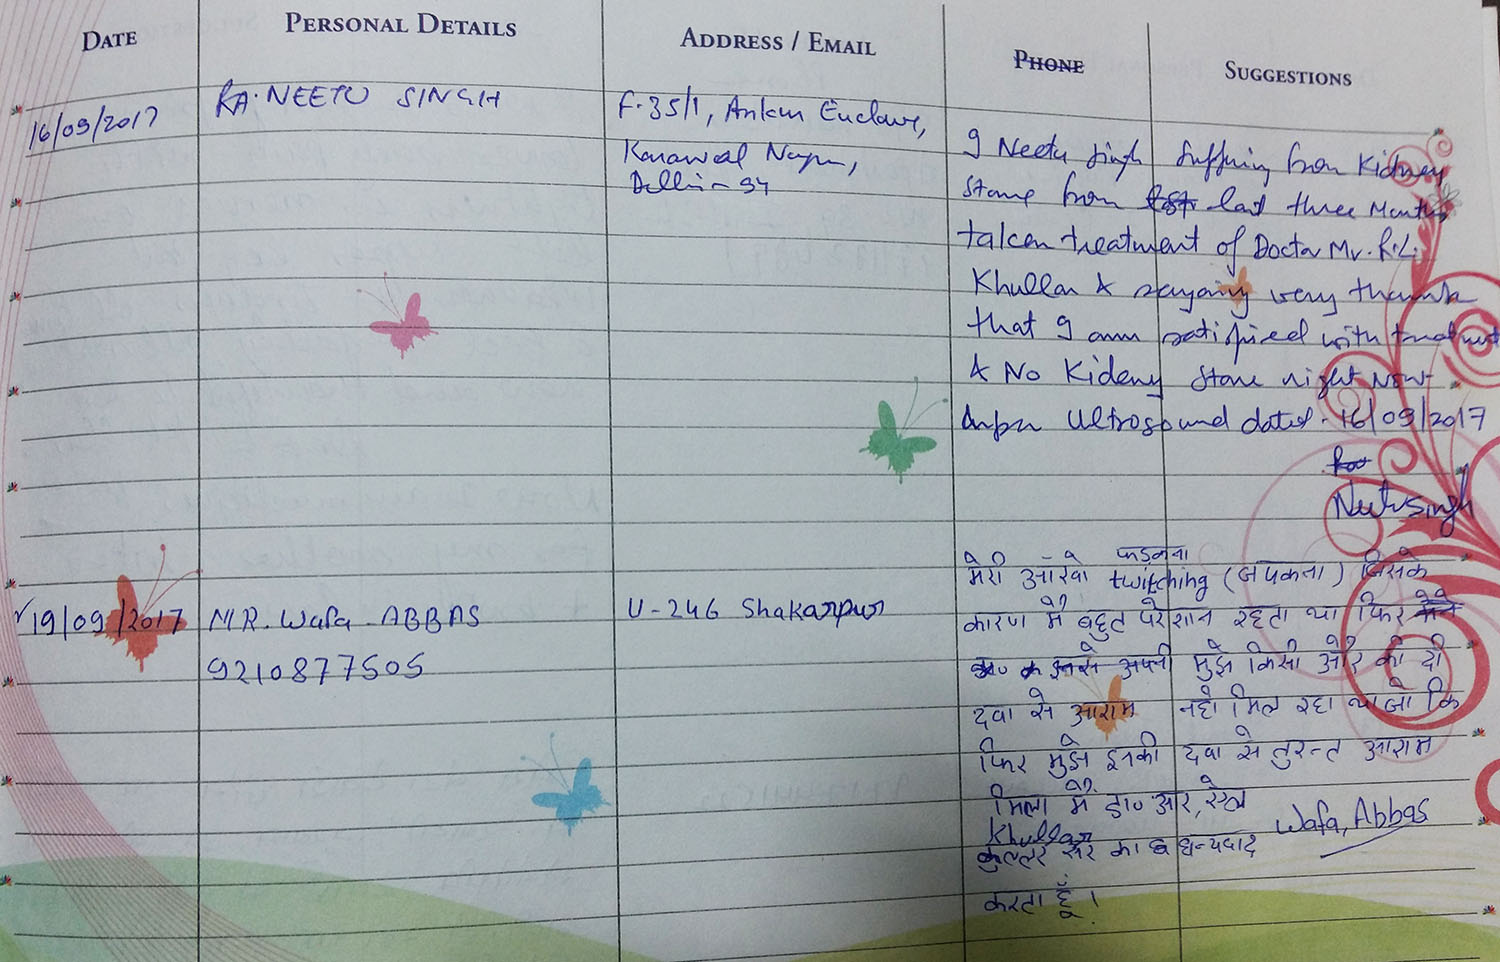 DATE PERSONAL DETAILS ADDRESS / EMAIL PHONE SUGGESTIONS
16/09/2017 RA. NEETU SINGH F-35/1, Ankur Enclave,
Karawal Nagar,
Delhi-94
I Neetu Singh Suffring from Kidney
stone from last three Months
taken treatment of Doctor Mr. R.L.
Khullar & sayaing very thank
that I am satisfied with treatment
& No Kideny Stone right Now
Ultrosound dated - 16/09/2017
Neetu Singh
19/09/2017 MR. Wafa ABBAS U-246 Shakarpur
9210877505
फड़कना
मेरी आँखे twitching (जपकना) जिसके
कारण मै बहुत परेशान रहता था फिर
मुझे किसी और की दी
दवा से आराम नही मिल रहा था जो कि
फिर मुझे इनकी दवा से तुरन्त आराम
मिला मै डा० आर, एल
Khullar
कुल्लर सर का धन्यवाद
करता हूँ।
Wafa, Abbas